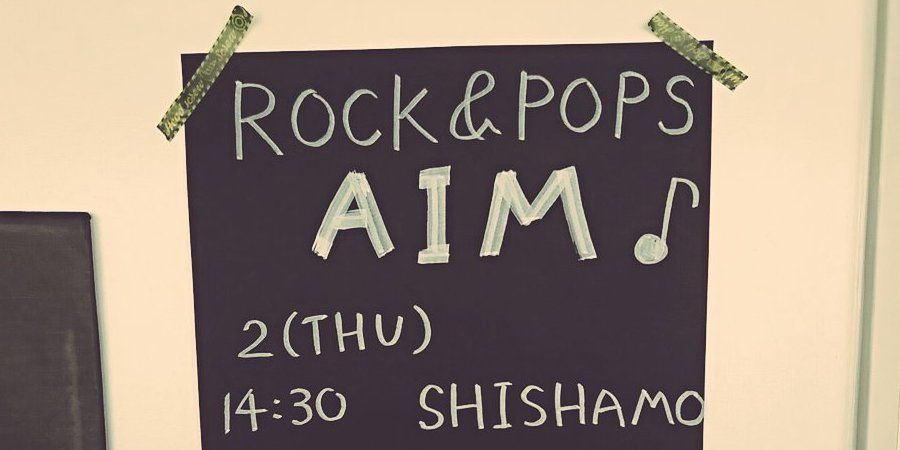 ROCK&POPS
AIM♪
2(THU)
14:30 SHISHAMO